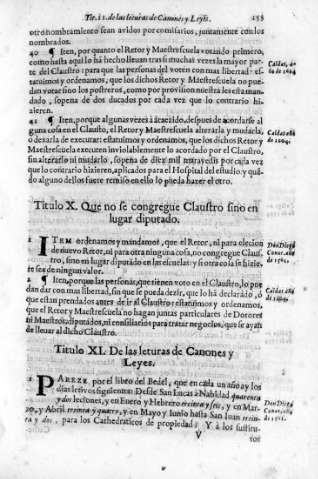 Tit. 11. de las leturas de Canones y Leyes. 155
otro nombramiento sean avidos por comissarios, juntamente con los
nombrados.
40 ¶ Iten, por quanto el Retor y Maestrescuela votando primero,
como hasta aqui lo há hecho lleuan tras si muchas vezes la mayor par
te del Claustro: para que las personas del voten con mas libertad: es-
tatuimos y ordenamos, que los dichos Retor y Maestrescuela no pue-
dan votar sino los postreros, como por provision nuestra les está man-
dado, sopena de dos ducados por cada vez que lo contrario hi-
zieren.
41 ¶ Iten, porque algunas vezes à acaecido, despues de acordarse al
guna cosa en el Claustro, el Retor y Maestrescuela alterarla y mudarla,
o dexarla de executar: estatuimos y ordenamos, que los dichos Retor y
Maestrescuela executen inviolablemente lo acordado por el Claustro,
sin alterarlo ni mudarlo, sopena de diez mil maravedis por cada vez
que lo contrario hizieren, aplicados para el Hospital del estudio, y quá-
do alguno dellos fuere remisso en ello lo pueda hazer el otro.
Titulo X. Que no se congregue Claustro sino en
lugar diputado.
1 ITEM ordenamos y mandamos, que el Retor, ni para eleccion
de nuevo Retor, ni para otra ninguna cosa, no congregue Claus-
tro, sino en lugar diputado en las escuelas: y si otra cosa se hizie-
re sea de ningun valor.
2 ¶ Iten, porque las personas, que tienen voto en el Claustro, lo pue
dan dar con mas libertad, sin que se pueda dezir, que lo à declarado, ó
que estan prendados antes de ir al Claustro: estatuimos y ordenamos,
que el Retor y Maestrescuela no hagan juntas particulares de Dotores
ni Maestros, diputados, ni consiliarios para tratar negocios, que se ayan
de lleuar al dicho Claustro.
Titulo XI. De las leturas de Canones y
Leyes.
1 PARECE por el libro del Bedel, que en cada un año ay los
dias lectivos siguientes: Desde San Lucas à Nabidad quarenta
y dos lecciones, y en Enero y Hebrero treinta y seis, y en Mar-
zo, y Abril treinta y quatro, y en Mayo y Junio hasta San Iuan
para los Cathedraticos de propiedad: Y à los sustitu-
V tos